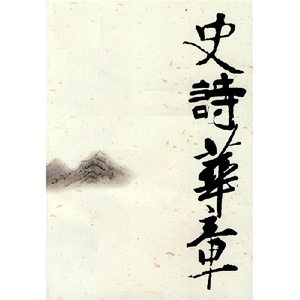 史詩華章